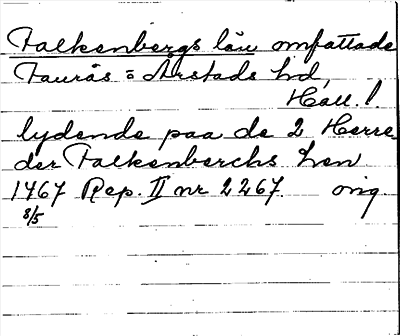 Falkenbergs län omfattade
Faurås o Årstads hd,
Hall. l.
lydende paa de 2 Herre
der Falkenberchs Len
1467 Rep. II nr 2267. orig.
8/5